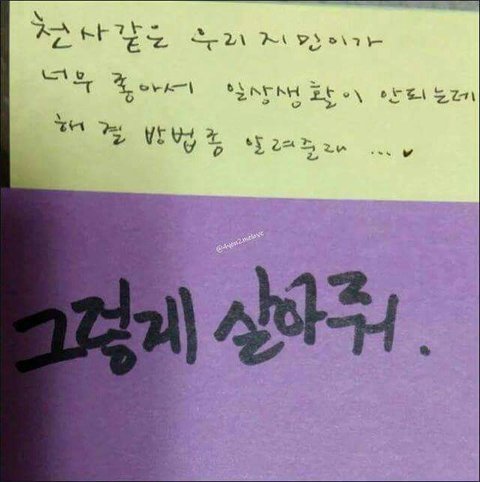 천사같은 우리지민이가
너무 좋아서 일상생활이 안되는데
해결방법좀 알려줄래 ...♥
@4you2melove
그렇게 살아줘.